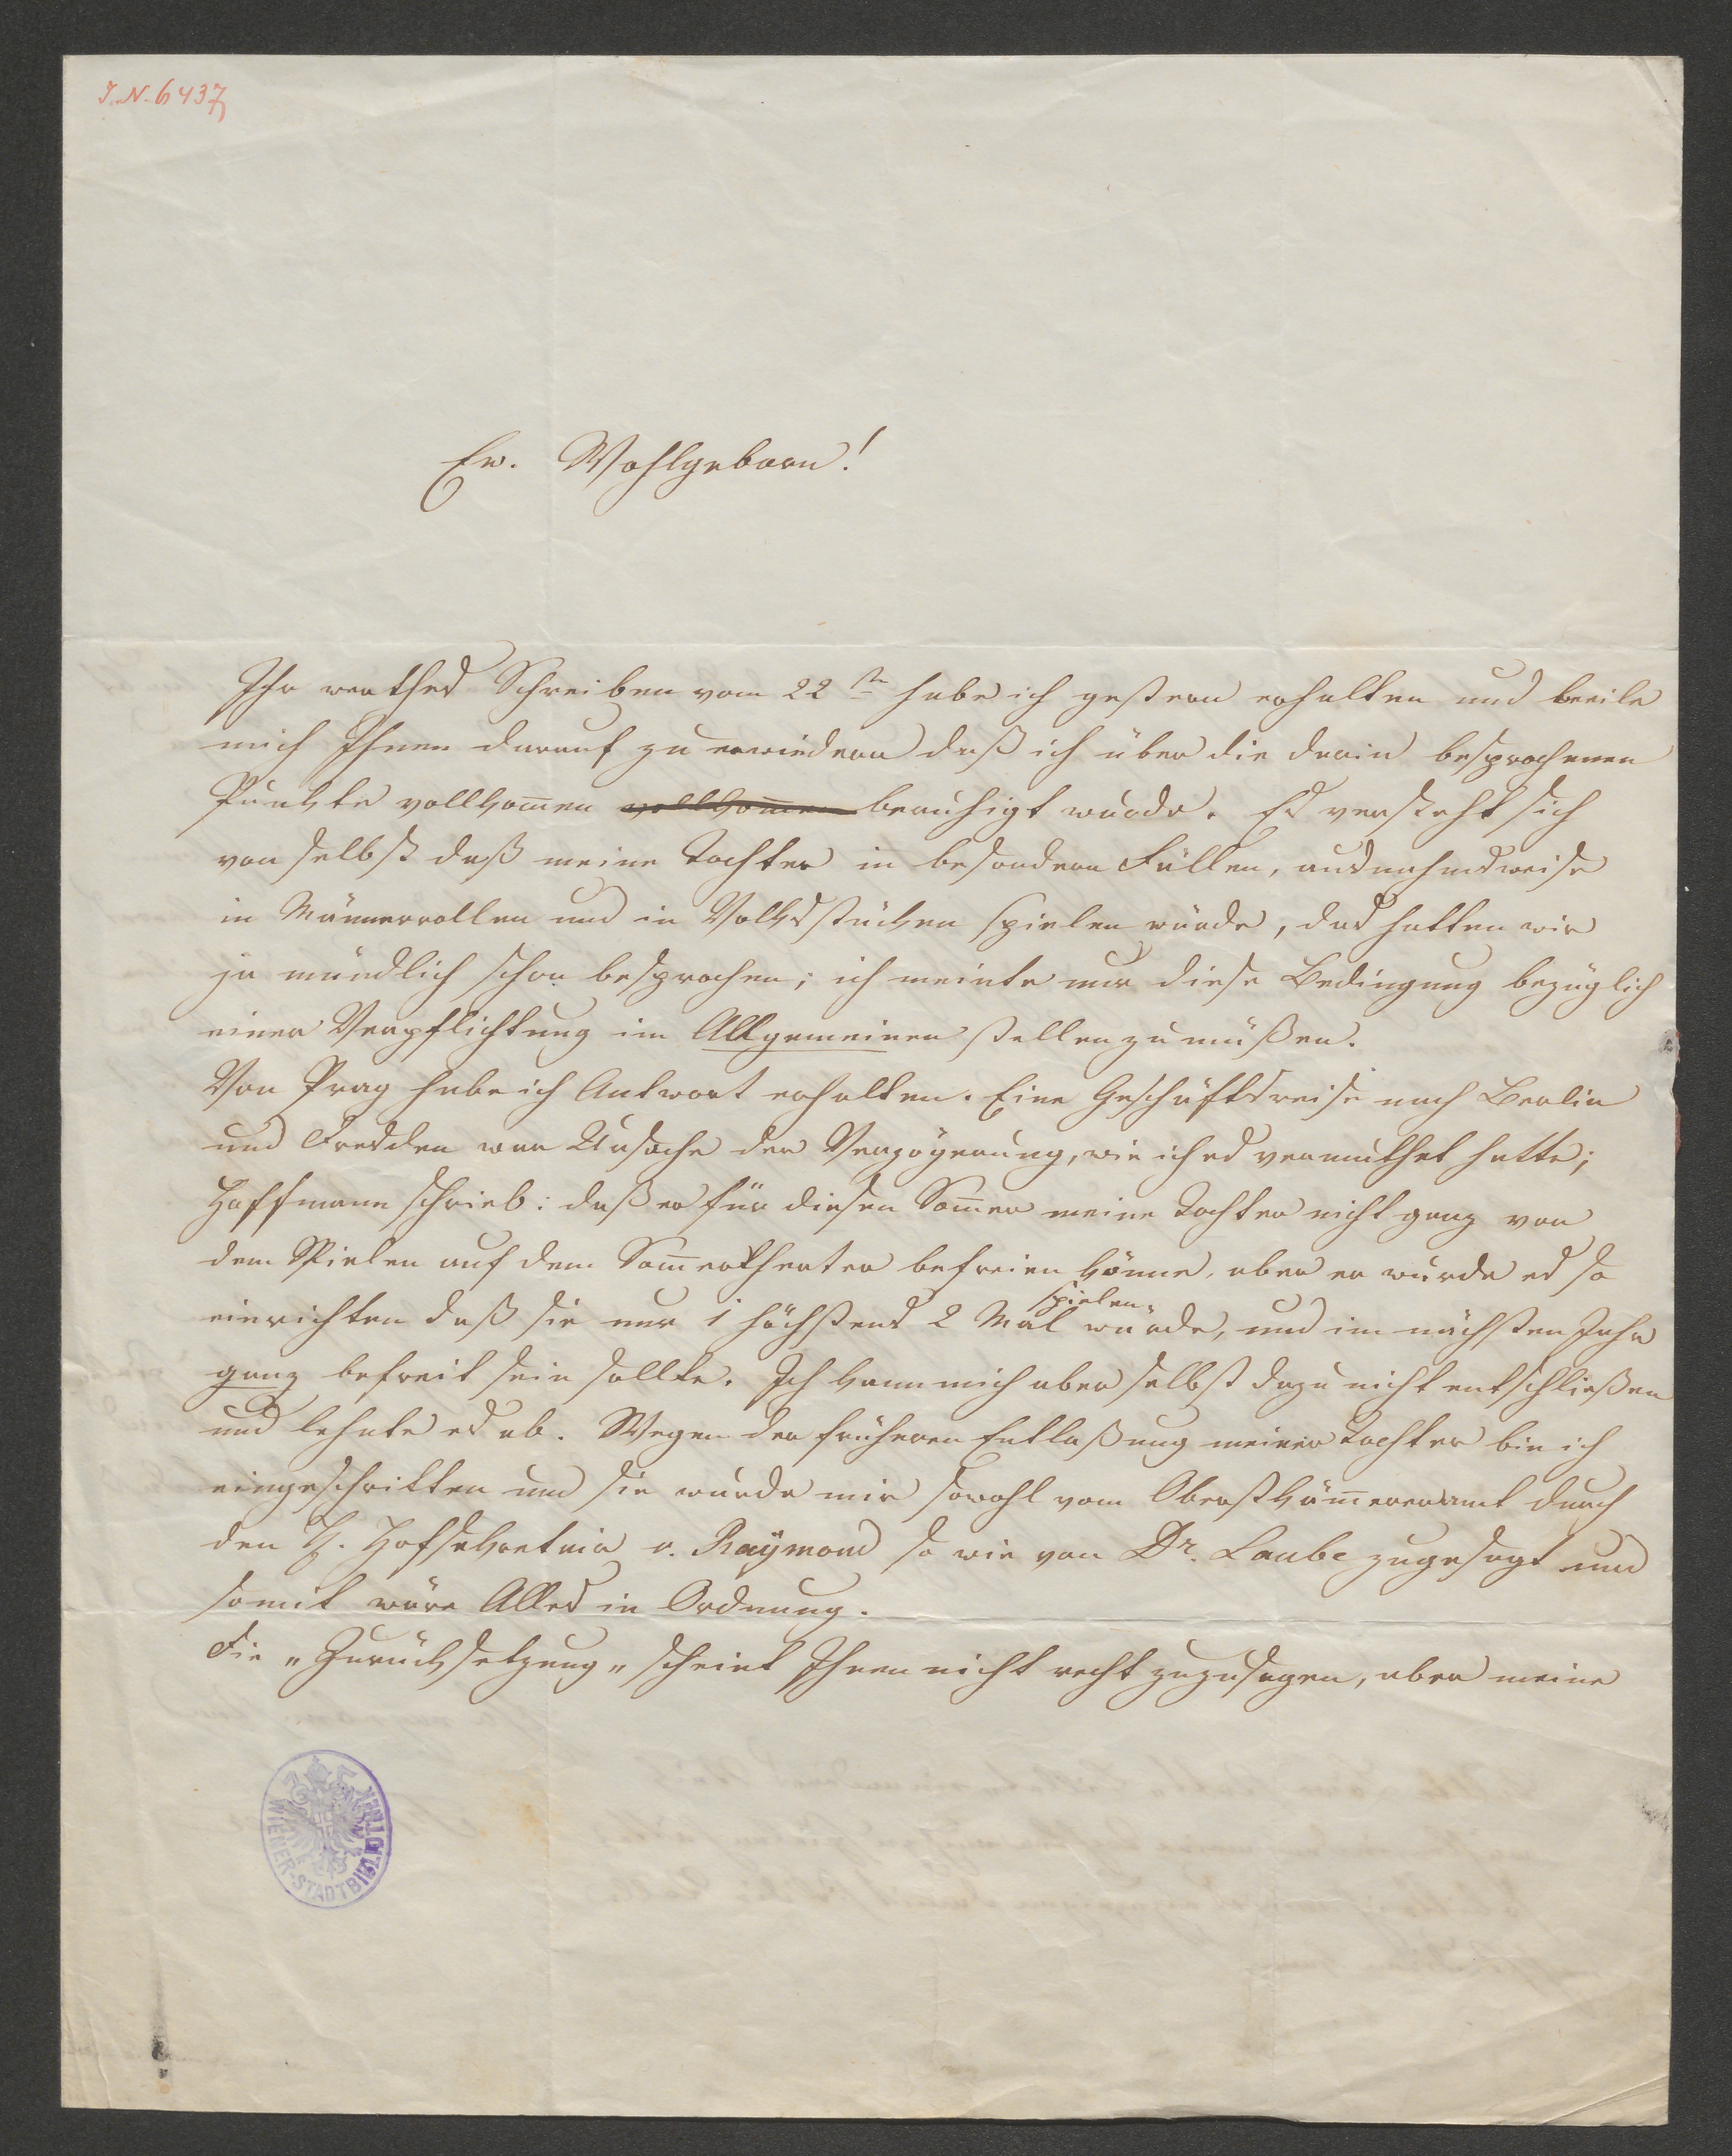 I.N. 6437
Ew. Wohlgeborn!
Ihr werthes Schreiben vom 22ten habe ich gestern erhalten und beeile
mich Ihnen darauf zu erwiedern daß ich über die darin besprochenen
Punkte vollkom̄en vollkom̄en beruhigt wurde. Es versteht sich
von selbst daß meine Tochter in besondern Fällen, ausnahmsweise
in Männerrollen und in Volksstücken spielen würde, das hatten wir
ja mündlich schon besprochen; ich meinte nur diese Bedingung bezüglich
einer Verpflichtung im Allgemeinen stellen zu müßen.
Von Prag habe ich Antwort erhalten. Eine Geschäftsreise nach Berlin
und Dresden war Ursache der Verzögerung, wie ich es vermuthet hatte;
Hoffmann schrieb: daß er für diesen Som̄er meine Tochter nicht ganz von
dem Spielen auf dem Som̄ertheater befreien könne, aber er würde es so
einrichten daß sie nur 1 höchstens 2 Mal spielen würde, und im nächsten Jahr
ganz befreit sein sollte. Ich kann mich aber selbst dazu nicht entschließen
und lehnte es ab. Wegen der früheren Entlaßung meiner Tochter bin ich
eingeschritten und sie wurde mir sowohl vom Oberstkäm̄ereramt durch
den H. Hofsekretair v. Raÿmond so wie von Dr. Laube zugesagt und
somit wäre Alles in Ordnung.
Die „Zurücksetzung„ scheint Ihnen nicht recht zuzusagen, aber meine
WIENER-STADTBIBLIOTHEK